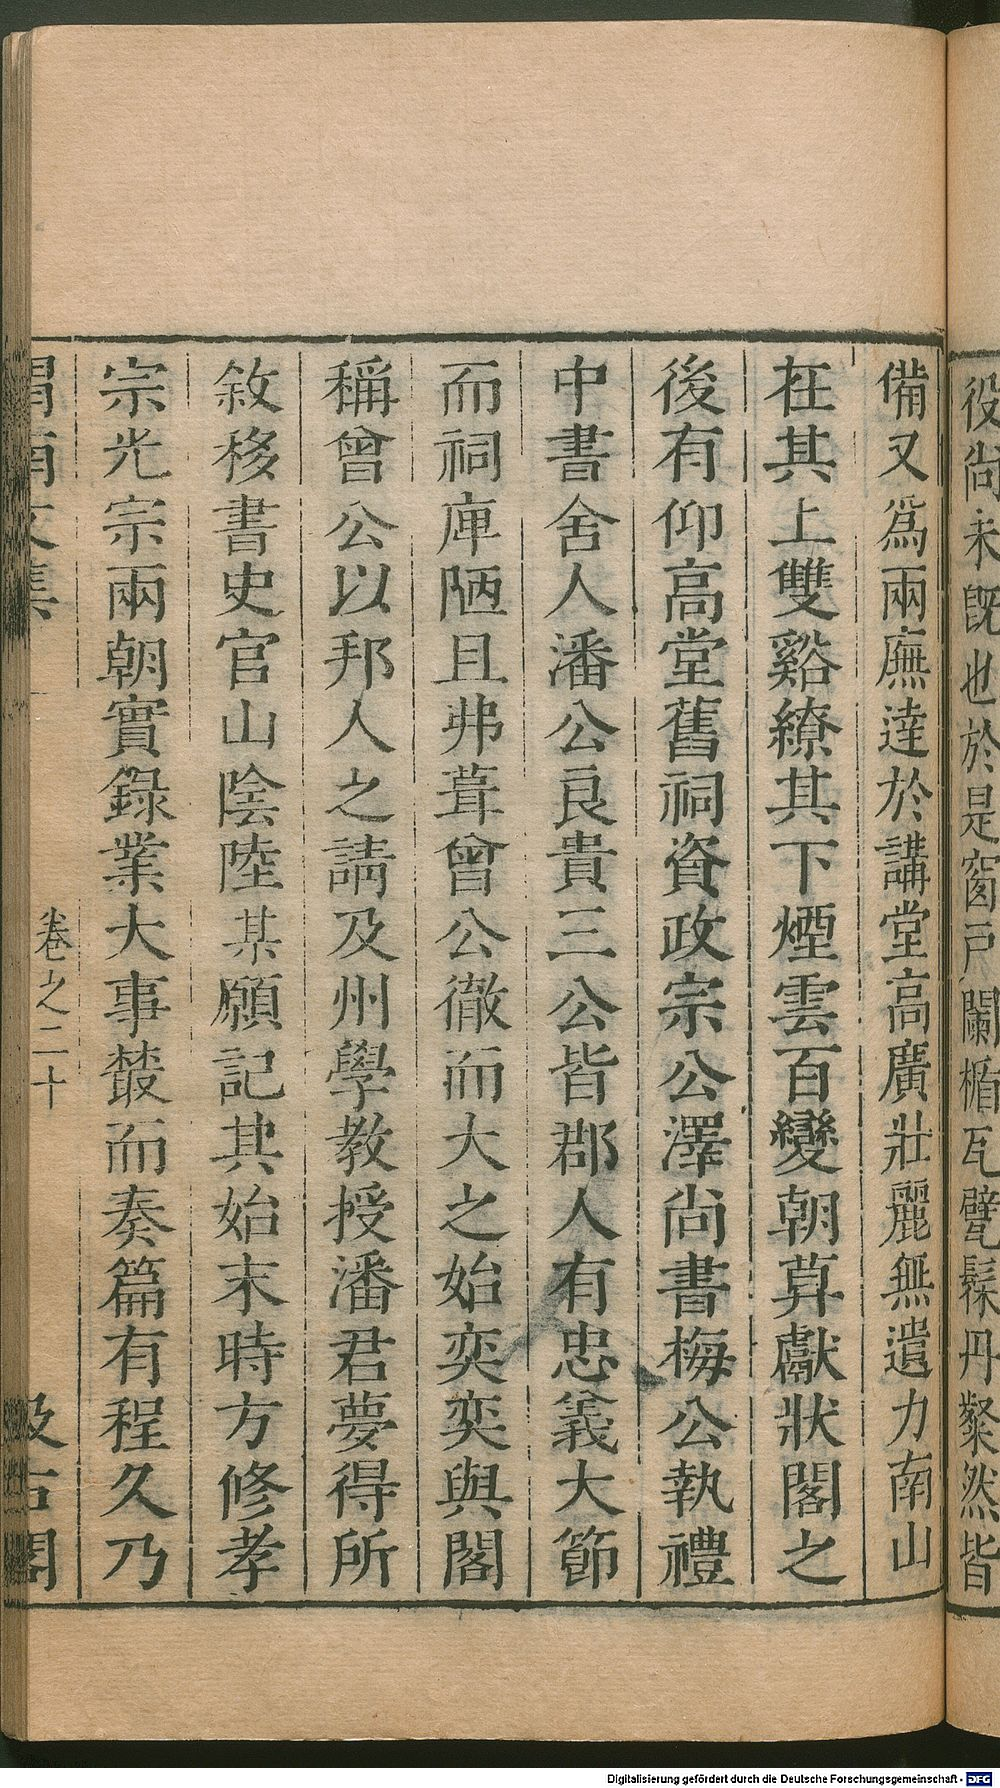 役尚未旣也於是窗戶闌楯瓦甓髹丹粲然皆
備又爲兩廡達於講堂高廣壯麗無遺力南山
在其上雙谿繚其下煙雲百變朝莫獻狀閣之
後有仰高堂舊祠資政宗公澤尚書梅公執禮
中書舍人潘公良貴三公皆郡人有忠義大節
而祠庳陋且弗葺曾公徹而大之始奕奕與閣
稱曾公以邦人之請及州學教授潘君夢得所
敘移書史官山陰陸某願記其始末時方修孝
宗光宗兩朝實錄業大事叢而奏篇有程久乃
渭南文集
卷之二十
汲古閣
Digitalisierung gefördert durch die Deutsche Forschungsgemeinschaft - DFG